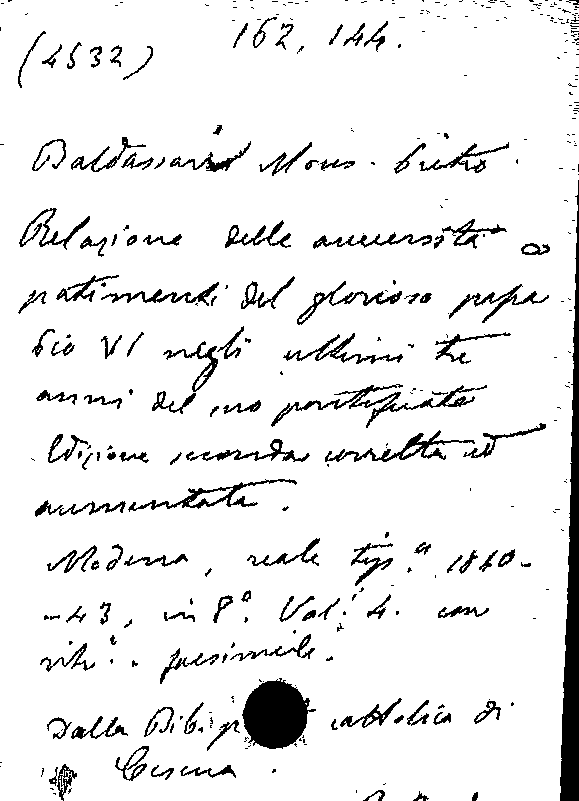 (4532) 162, 144.
Baldassari Mons. Pietro.
Relazione delle avversità e
patimenti del glorioso papa
Pio VI negli ultimi tre
anni del suo pontificato
Edizione seconda corretta ed
aumentata.
Modena, reale tip.ª 1840-
-43, in 8°. Vol.i 4. con
ritr. e facsimile.
Dalla Bib. cattolica di
Cesena.